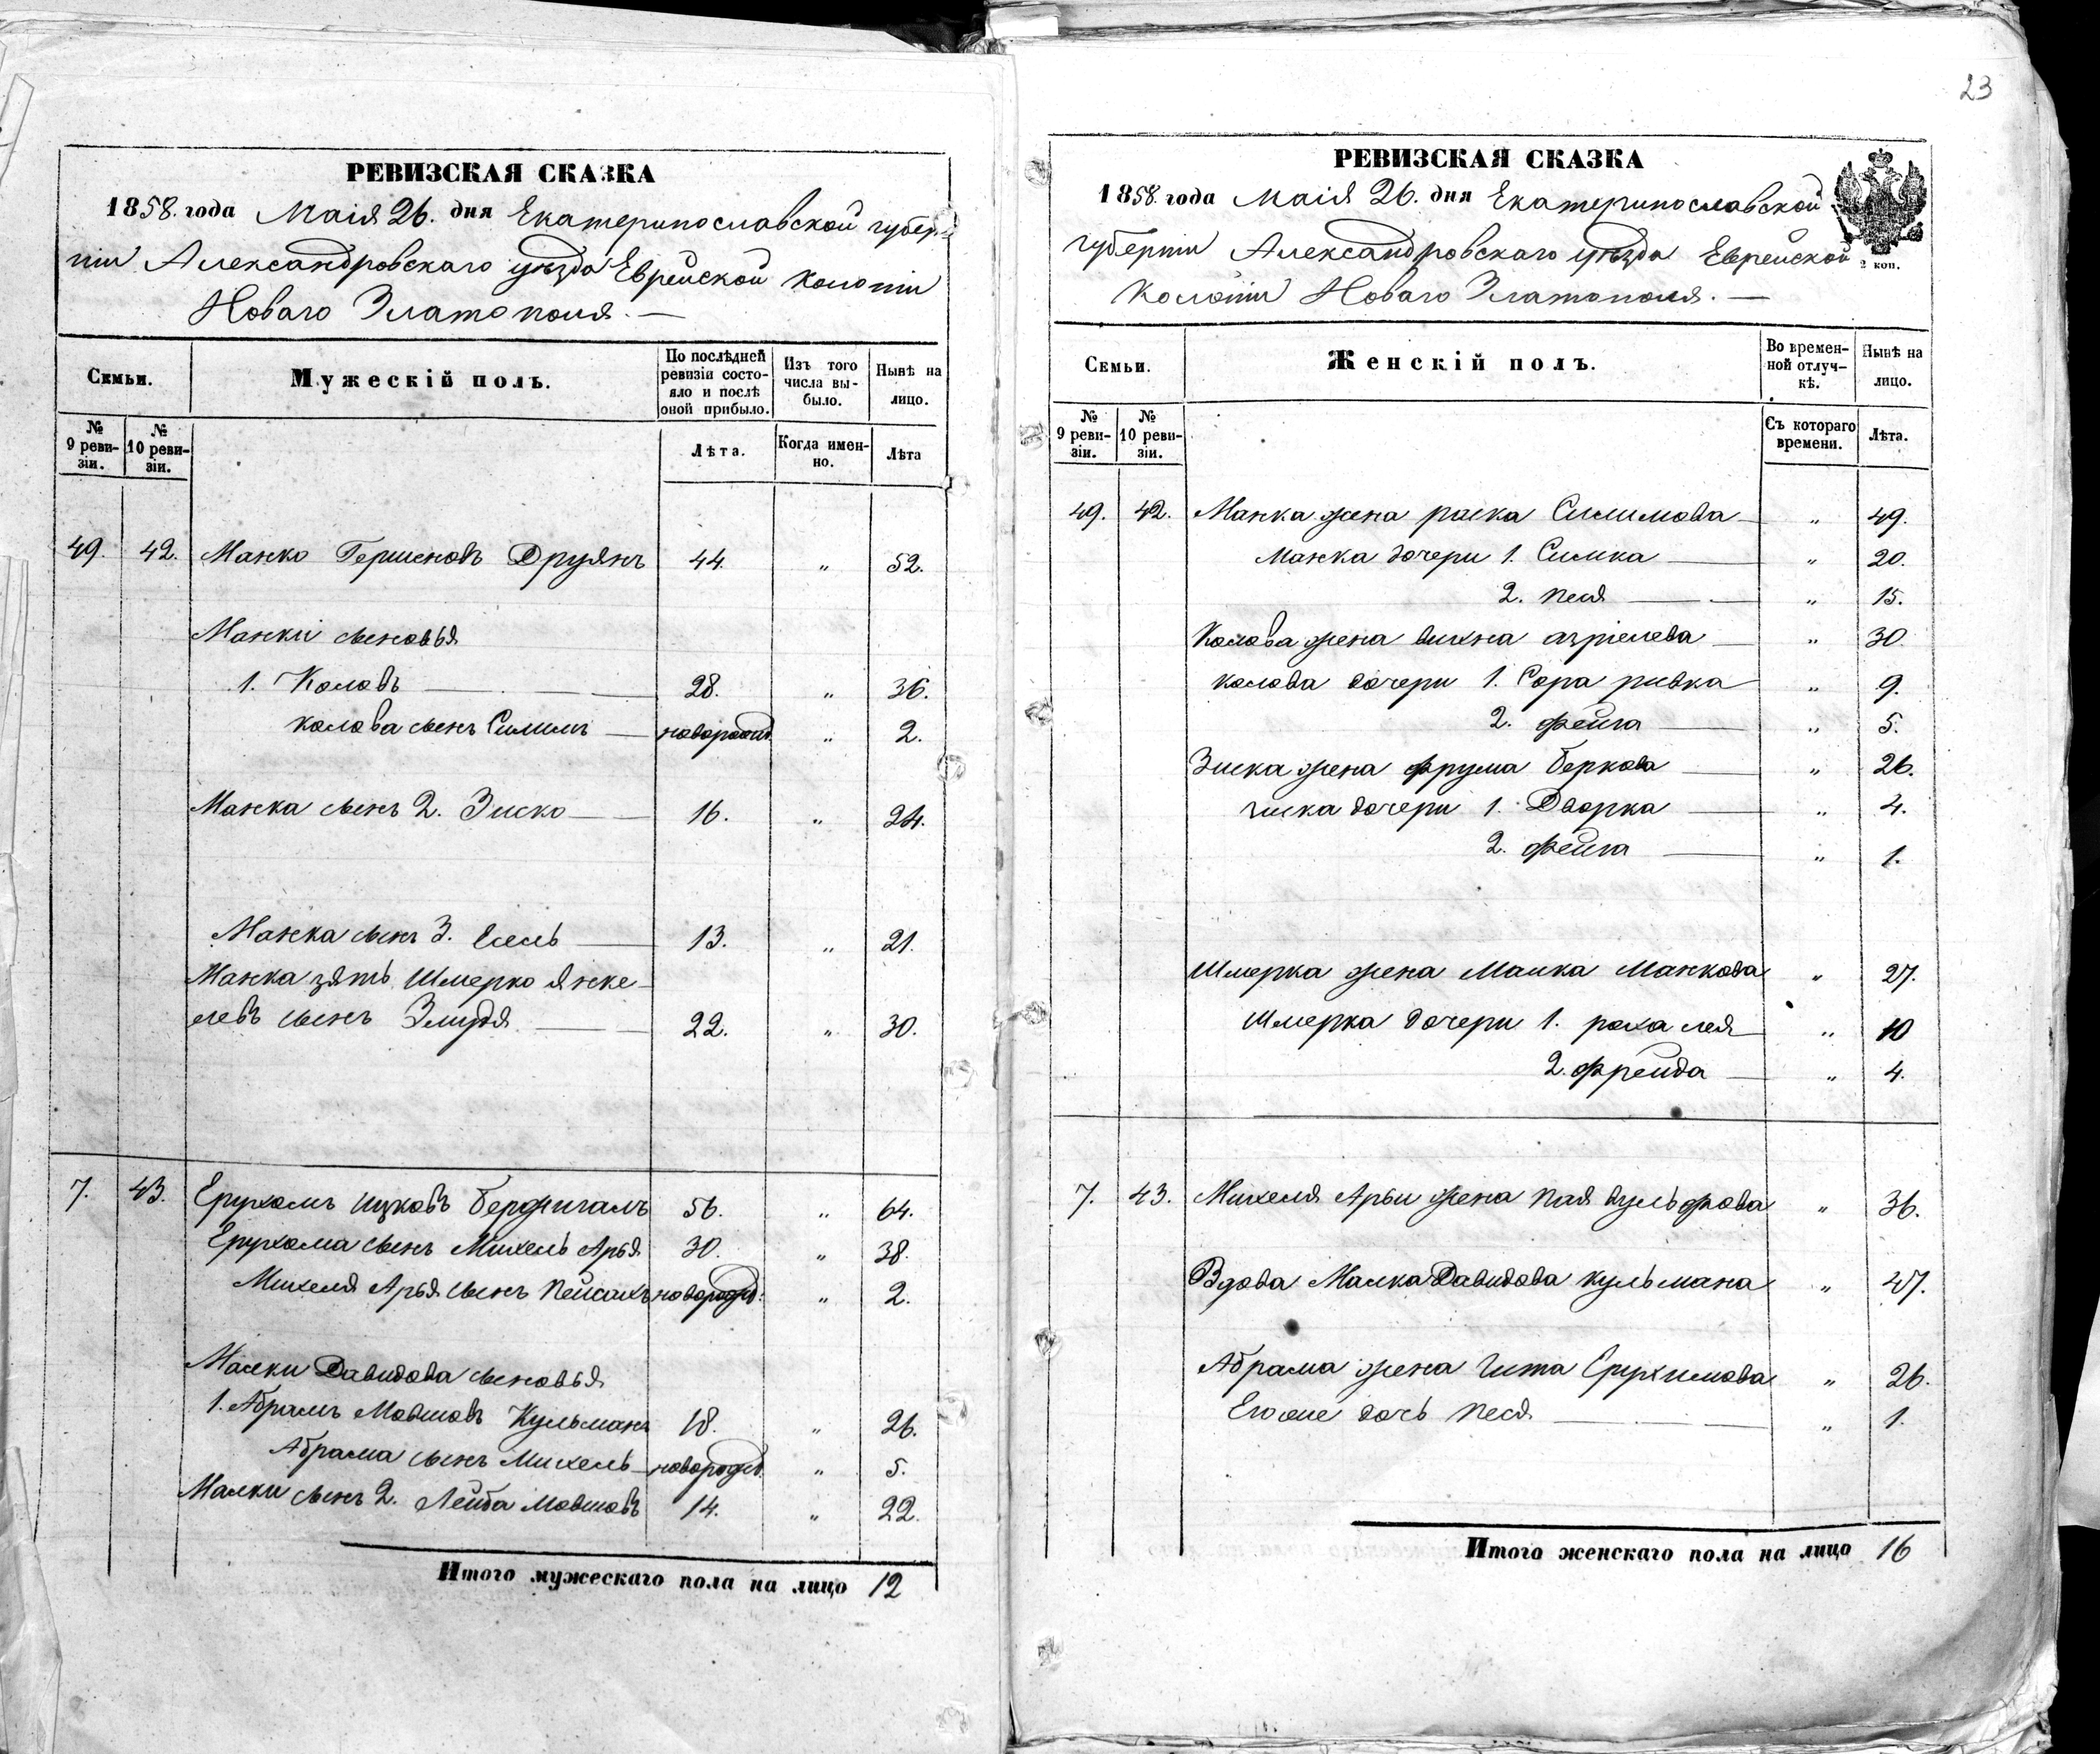 23
РЕВИЗСКАЯ СКАЗКА
1858. года Маія 26. дня Екатеринославской губер-
ніи Александровскаго уѣзда Еврейской колоніи
Новаго Златополя. —
Семьи.
Мужескій полъ.
По послѣдней ревизіи состояло и послѣ оной прибыло.
Изъ того числа выбыло.
Нынѣ на лицо.
№ 9 ревизіи.
№ 10 ревизіи.
Лѣта.
Когда именно.
Лѣта
49. 42. Манко Гершковъ Друянъ 44. „ 52.
Манки сыновья
1. Коловъ — 28. „ 36.
Колова сынъ Симимъ — новорожд. „ 2.
Манка сынъ 2. Зиско — 16. „ 24.
Манка сынъ 3. — 13. „ 21.
Манка зять Шмерко Янке-
левъ сынъ — 22. „ 30.
7. 43. Ерухомъ Ицковъ 56. „ 64.
Ерухома сынъ Михель Арья 30. „ 38.
Михеля Арья сынъ Пейсахъ новорожд: „ 2.
Малки Давидова сыновья
1. Абрамъ Мовшовъ Кульманъ 18. „ 26.
Абрама сынъ Михель — новорожд. „ 5.
Малки сынъ 2. Лейба Мовшовъ 14. „ 22.
Итого мужескаго пола на лицо 12
РЕВИЗСКАЯ СКАЗКА
1858. года Маія 26. дня Екатеринославской
губерніи Александровскаго уѣзда Еврейской
Колоніи Новаго Златополя. —
2 коп.
Семьи.
Женскій полъ.
Во временной отлучкѣ.
Нынѣ на лицо.
№ 9 ревизіи.
№ 10 ревизіи.
Съ котораго времени.
Лѣта.
49. 42. Манка жена Симимова — „ 49.
Манка дочери 1. Симка — „ 20.
2. Песя — „ 15.
Колова жена Вихна Азріелева — „ 30.
Колова дочери 1. Сора Ривка „ 9.
2. Фейга — „ 5.
Зиска жена Фрума Беркова — „ 26.
Зиска дочери 1. Дворка — „ 4.
2. Фейга — „ 1.
Шмерка жена Малка Манкова „ 27.
Шмерка дочери 1. Рохалея „ 10
2. Фрейда — „ 4.
7. 43. Михеля Арьи жена Пая Вульфова „ 36.
Вдова Малка Давидова Кульмана „ 47.
Абрама жена Гита Ерухимова „ 26.
Его же дочь Песя — „ 1.
Итого женскаго пола на лицо 16